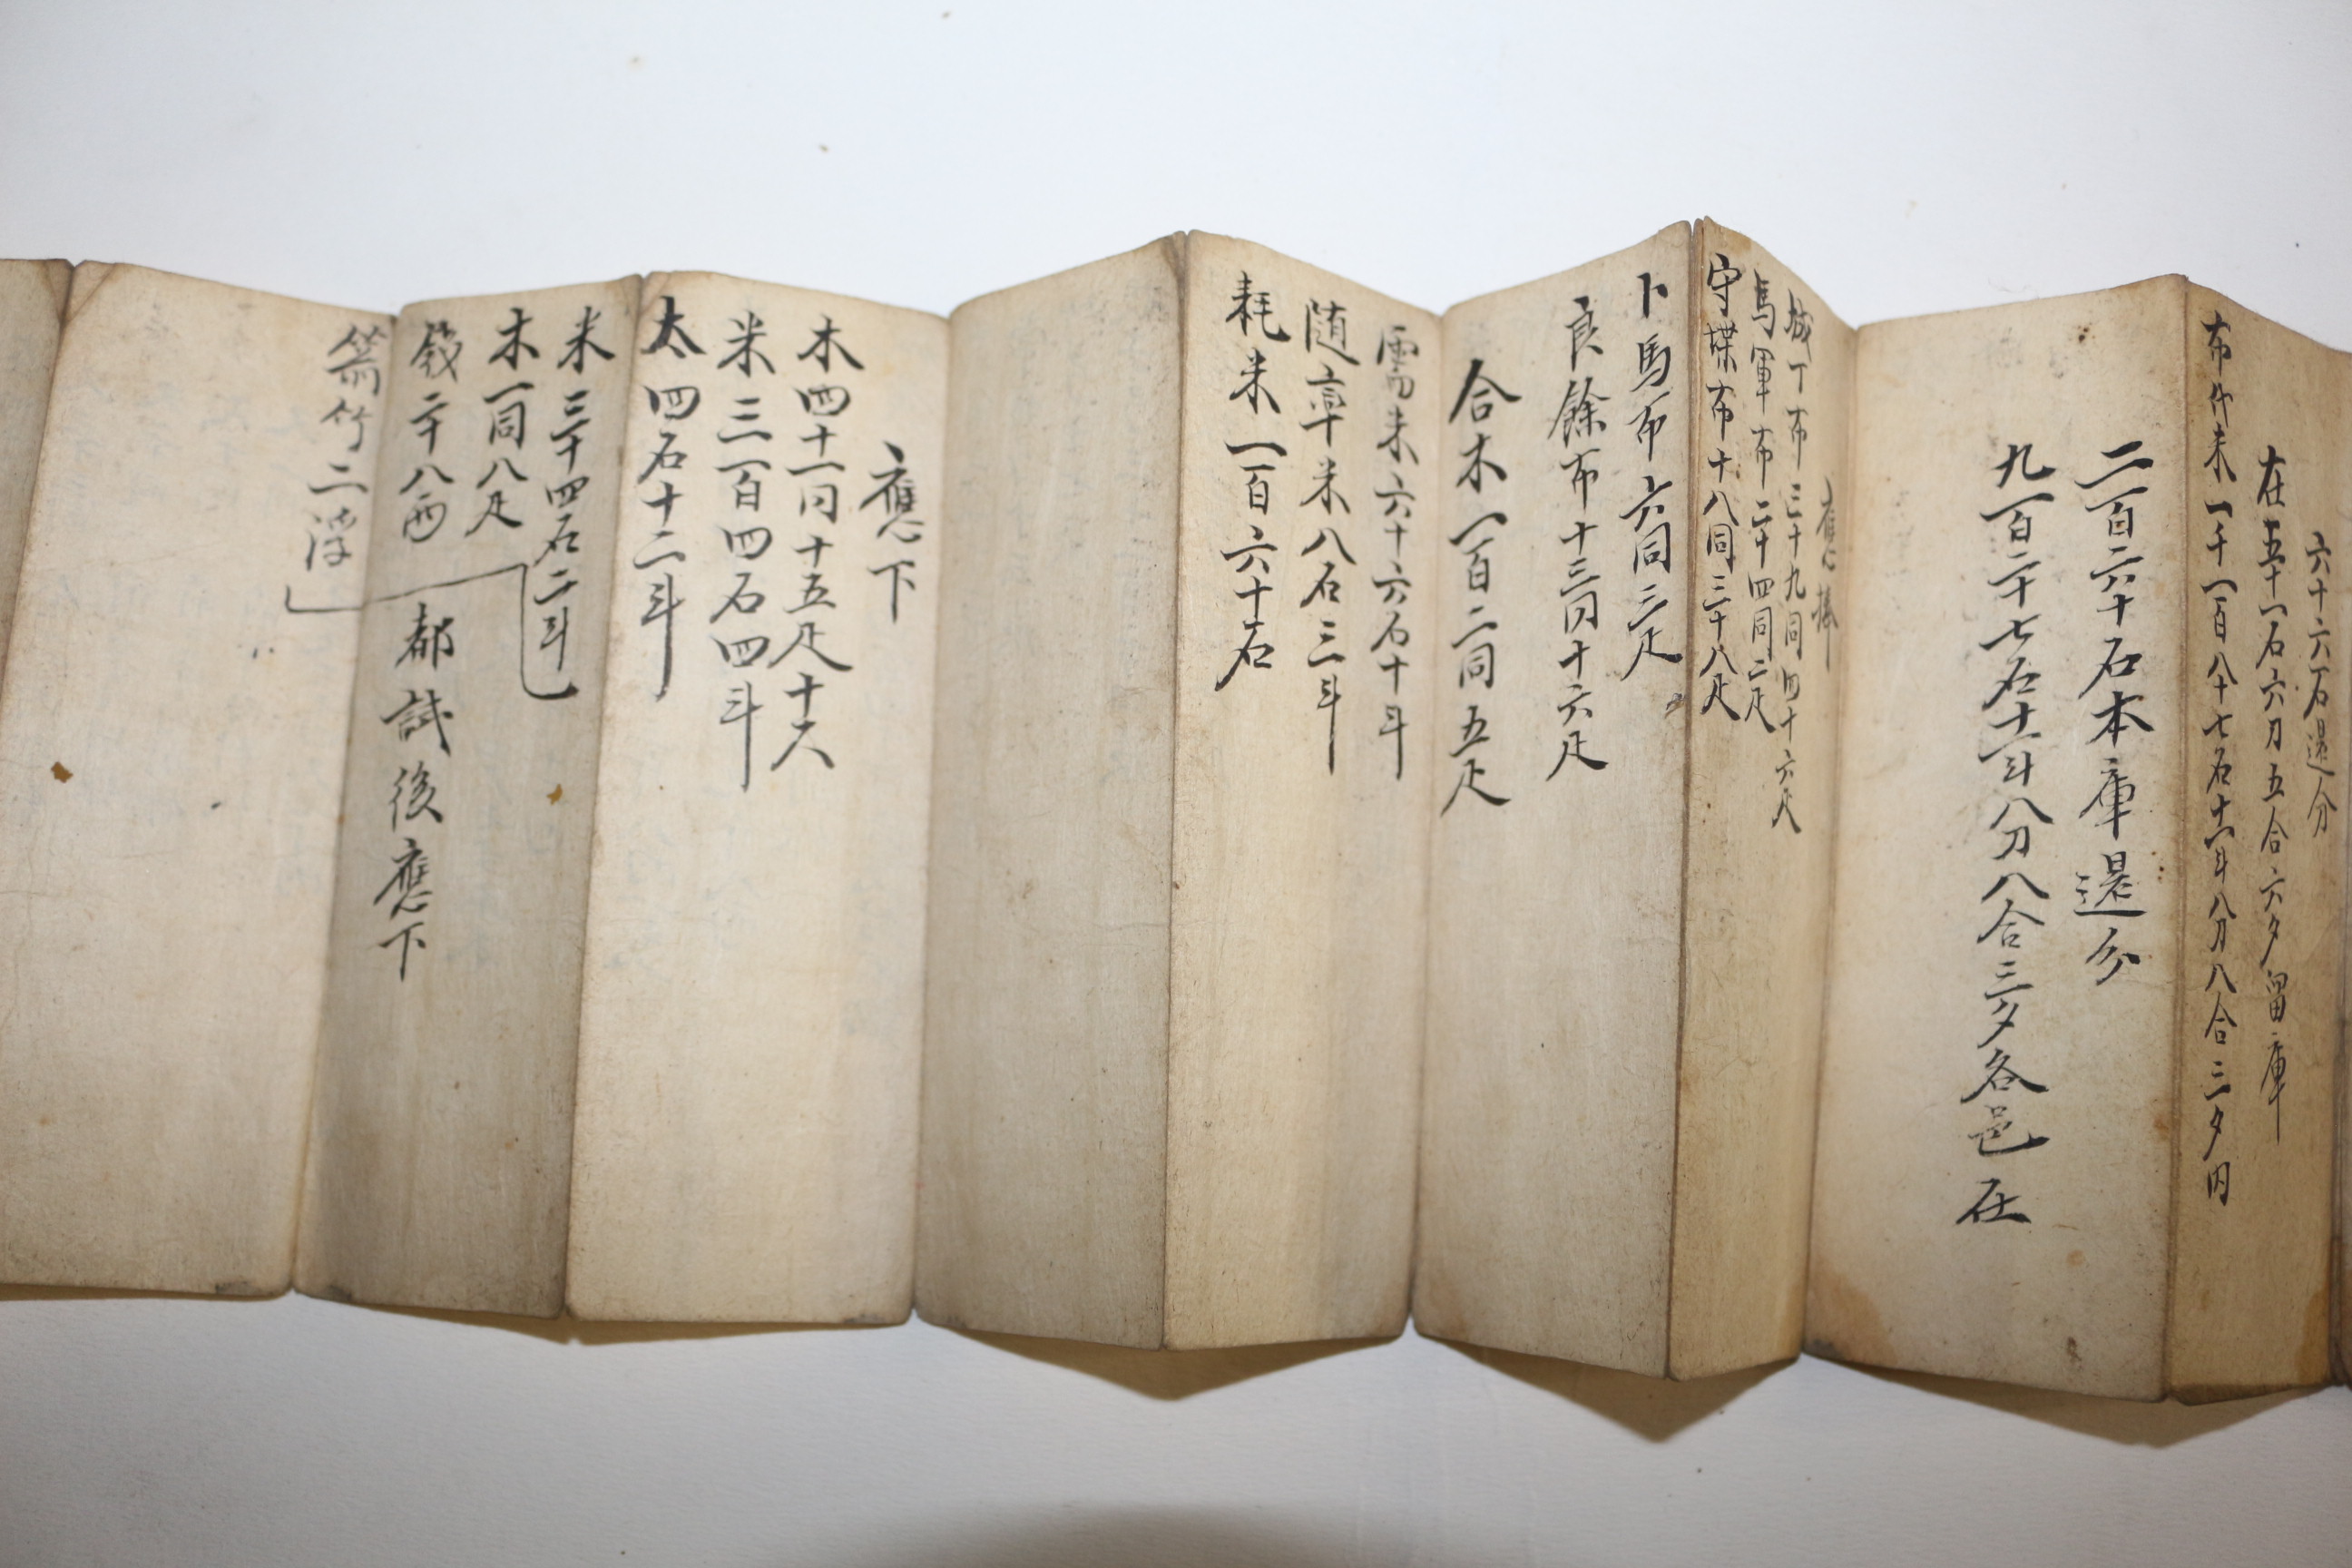 六十六石還分
在五十一石六刀五合六夕留庫
布代米一千一百八十七石十一斗八刀八合三夕內
二百六十石本庫還分
九百二十七石十一斗八刀八合三夕各邑在
應捧
城丁布三十九同四十六疋
馬軍布二十四同二疋
守堞布十八同三十八疋
卜馬布六同三疋
良餘布十三同十六疋
合木一百二同五疋
需米六十六石十斗
隨率米八石三斗
耗米一百六十石
應下
木四十一同十五疋十六
米三百四石四斗
太四石十二斗
米三十四石二斗
木一同八疋
錢二十八兩
都試後應下
箭竹二浮